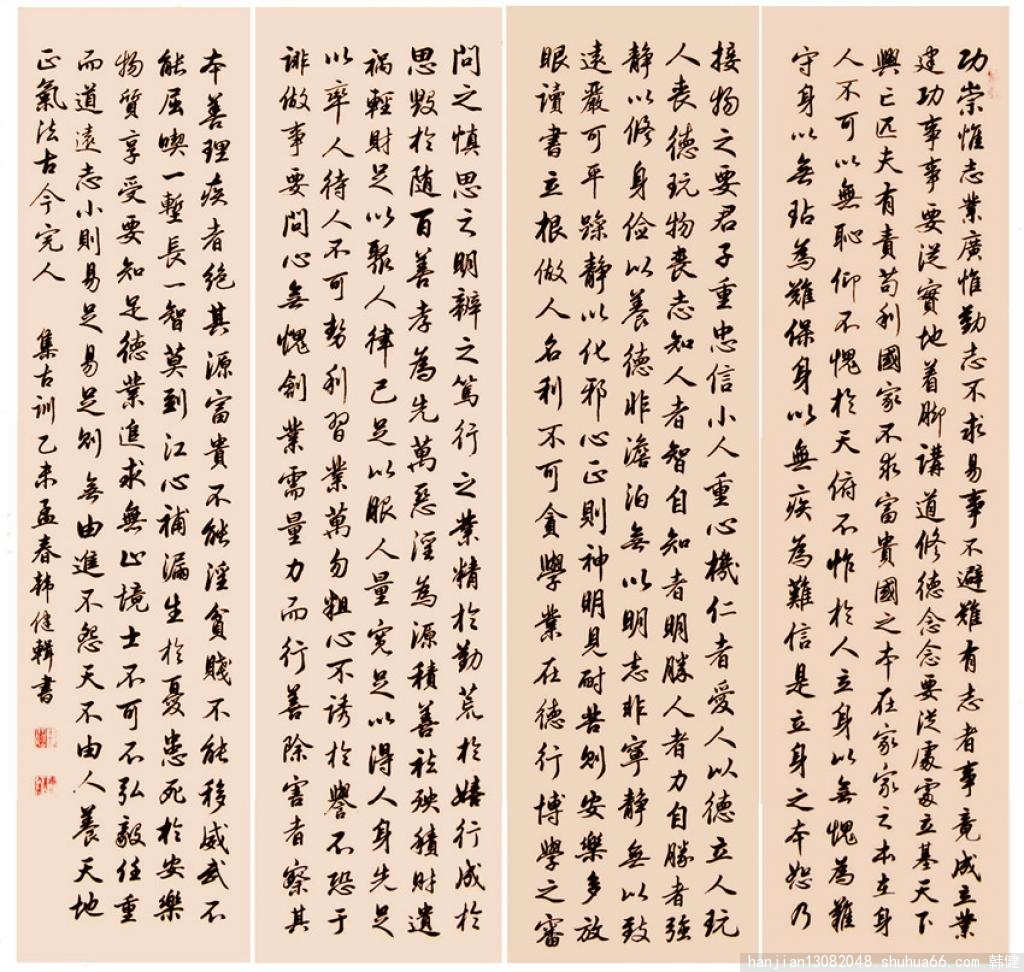 功崇惟志業廣惟勤志不求易事不避難有志者事竟成立業
建功事事要從實地着脚講道修德念念要從處處立基天下
興亡匹夫有責苟利國家不求富貴國之本在家家之本在身
人不可以無恥仰不愧於天俯不怍於人立身以無愧為難
守身以無玷為難保身以無疾為難信是立身之本恕乃
接物之要君子重忠信小人重心機仁者愛人以德立人玩
人喪德玩物喪志知人者智自知者明勝人者力自勝者強
静以修身儉以養德非澹泊無以明志非寧静無以致
遠嚴可平躁静以化邪心正則神明見耐苦則安樂多放
眼讀書立根做人名利不可貪學業在德行博學之審
問之慎思之明辨之篤行之業精於勤荒於嬉行成於
思毀於随百善孝為先萬惡淫為源積善祛殃積財遺
禍輕財足以聚人律己足以服人量寬足以得人身先足
以率人待人不可勢利習業萬勿粗心不誘於譽不恐于
誹做事要問心無愧創業需量力而行善除害者察其
本善理疾者绝其源富貴不能淫貧賤不能移威武不
能屈喫一塹長一智莫到江心補漏生於憂患死於安樂
物質享受要知足德業追求無止境士不可不弘毅任重
而道遠志小則易足易足則無由進不怨天不由人養天地
正氣法古今完人 集古訓乙未孟春韩健輯書
hanjian13082048 shuhua66.com 韩健